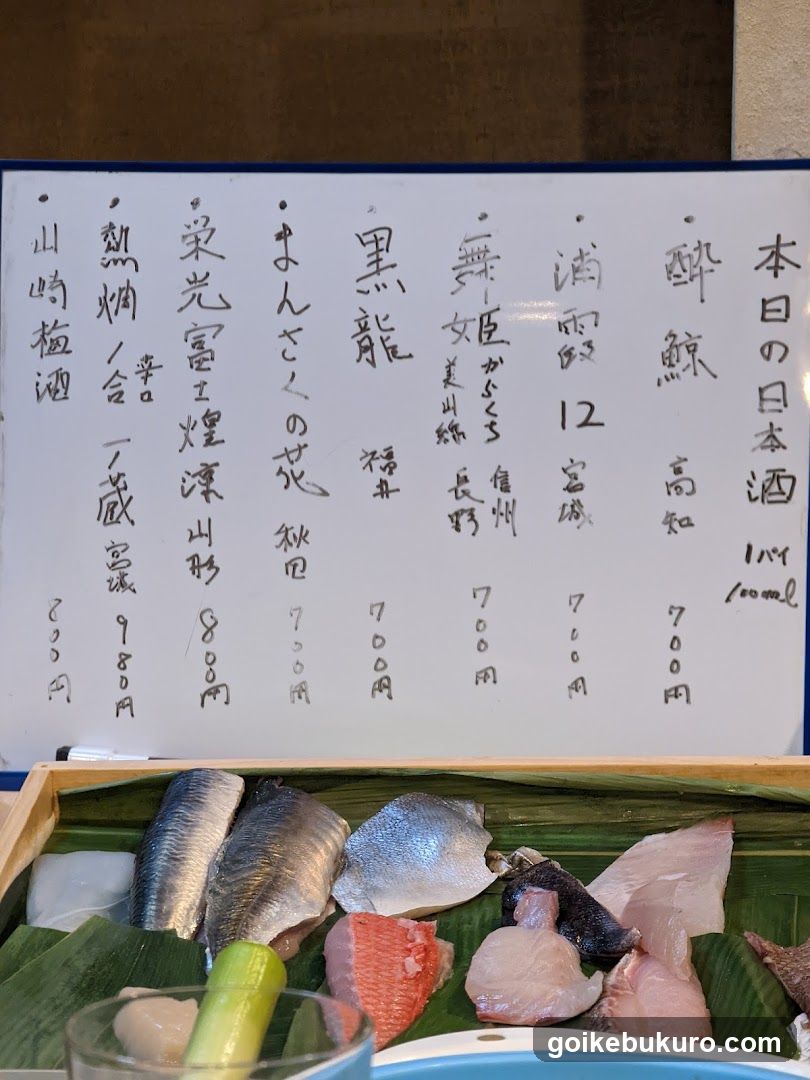 本日の日本酒 1パイ 100ml
・酔鯨 高知 700円
・浦霞 12 宮城 700円
・舞姫 からくち 信州
美山錦 長野 700円
・黒龍 福井 700円
・まんさくの花 秋田 700円
・栄光冨士 煌凛 山形 800円
・熱燗 1合 辛口 一ノ蔵 宮城 980円
・山崎梅酒 800円
goikebukuro.com